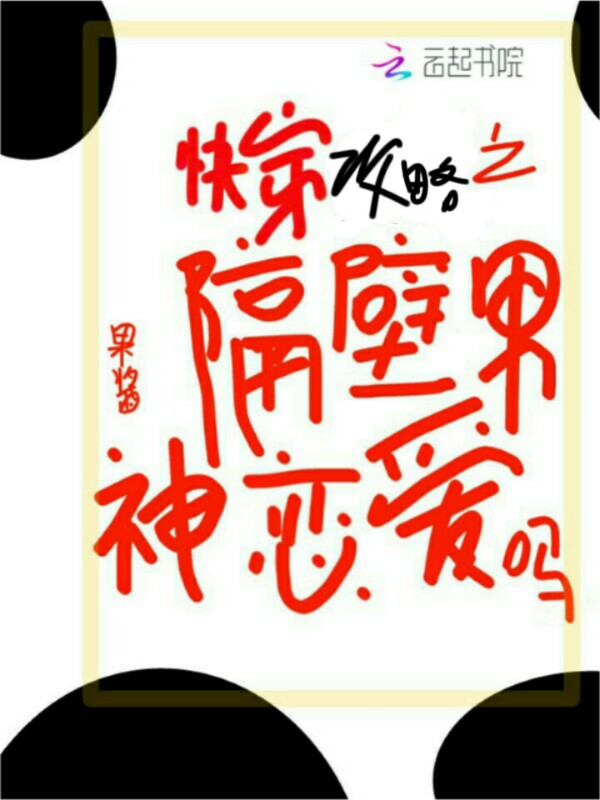 云起书院
快穿攻略之
隔壁男
神恋爱吗
果酱